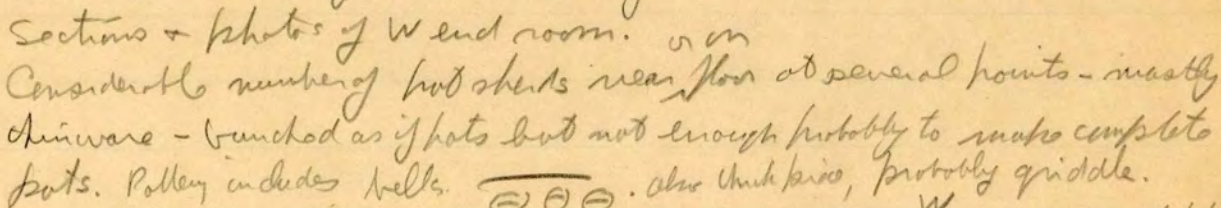 Sections + photos of W end room.
or on
Considerable number of pot sherds near floor at several points - mostly
chinware - bunched as if pots but not enough probably to make complete
pots. Pottery includes bells. also thick piece, probably griddle.
W